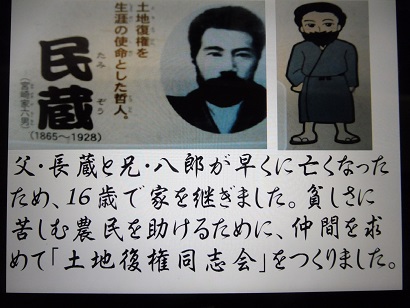 土地復権を
生涯の使命とした哲人。
民蔵
たみ ぞう
(宮崎家六男)
(1865〜1928)
父・長蔵と兄・八郎が早くに亡くなった
ため、16歳で家を継ぎました。貧しさに
苦しむ農民を助けるために、仲間を求
めて「土地復権同志会」をつくりました。